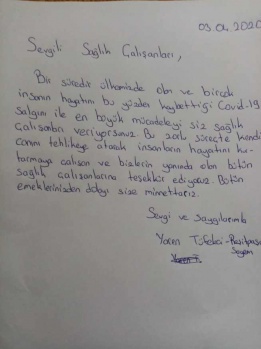 03.04.2020
Sevgili Sağlık Çalışanları,
Bir süredir ülkemizde olan ve birçok
insanın hayatını bu yüzden kaybettiği Covid-19
Salgını ile en büyük mücadeleyi siz sağlık
çalışanları veriyorsunuz. Bu zorlu süreçte kendi
canını tehlikeye atarak insanların hayatını kur-
tarmaya çalışan ve bizlerin yanında olan bütün
sağlık çalışanlarına teşekkür ediyoruz. Bütün
emeklerinizden dolayı size minnettarız.
Sevgi ve saygılarımla
Yaren Tüfekci-Reşitpaşa